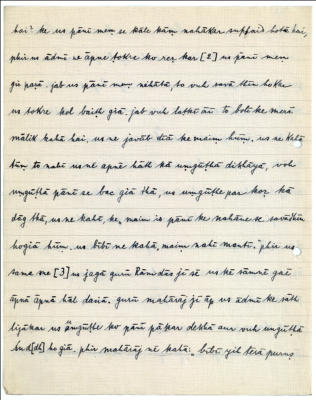 hai? ke us pānī meṃ se kāle kāṃ nahākar suffaid hotā hai,
phir us ādmī ne āpne tokre ko rez kar [2] us pānī meṃ
gir paṛā. jab us pānī meṃ nehātā to vuh savā thīn hokke
us tokre kol baiṭh giā. jab vuh laṛkī āī to bolī ke merā
mālik kahā hai, us ne javāb diā ke maiṃ hūṃ, us ne kahā
tūṃ to nahī us nē apnē hāth kā uṃgūṭhā dikhāyā, voh
uṃgūṭhā pānī se bac giā thā, us uṃgūṭhe par koṛ kā
dāg thā, us ne kahā, ke maiṃ is pānī ke nahāne se savādhīn
hogiā hūṃ. us bībī ne kahā, maiṃ nahī mantī." phir us
same me [3] us jagā gurū Rāmdās jī sē us kē sāmnē gaē
āpnā āpnā hāl dasiā. gurū mahārāj jī āp us ādmī ke sāth
lijākar us āṅgūṭhe ko pānī pākar dekhā aur vuh uṃgūṭhā
śud[dh] ho giā. phir mahārāj nē kahā: „bībī yih terā puruṣ